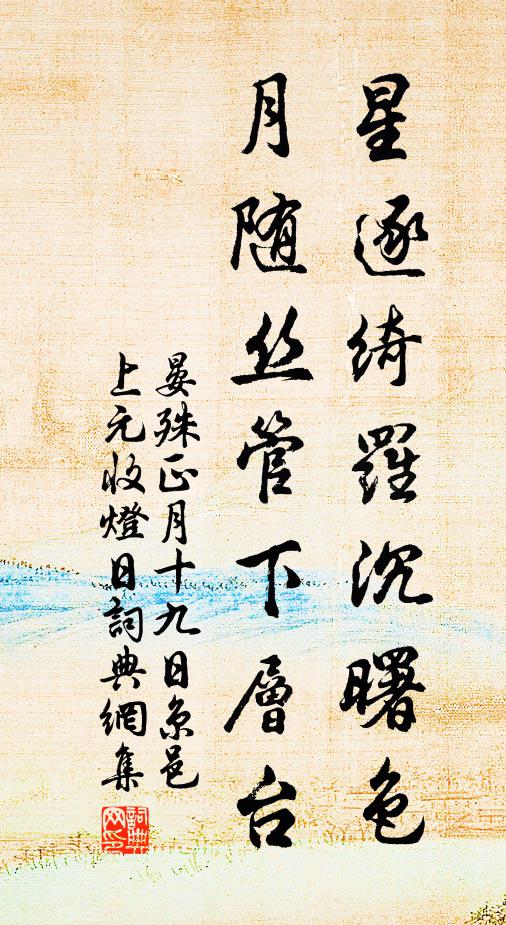 星逐绮羅沉曙色
月随丝管下層台
晏殊正月十九日京邑
上元收燈日詞典網集
詞典网印